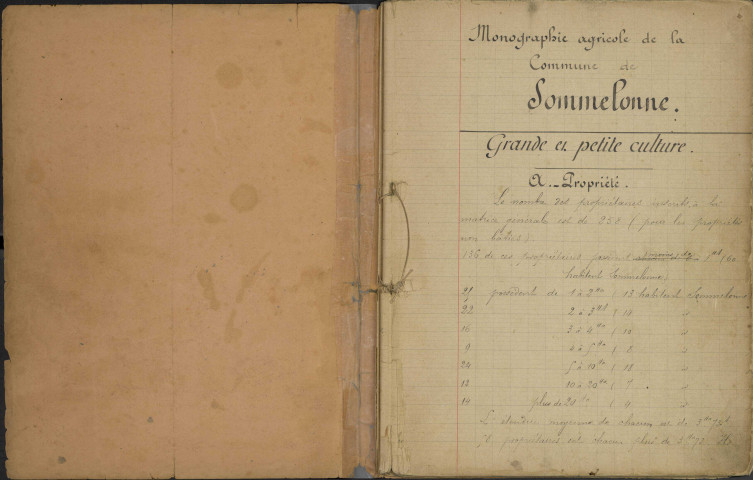 Monographie agricole de la
Commune de
Sommelonne.
Grande et petite culture.
A. - Propriété.
Le nombre des propriétaires inscrits à la
matrice générale est de 252 ( pour les propriétés
non bâties ).
136 de ces propriétaires possèdent moins de 1 ha ( 60
habitent Sommelonne )
21 possèdent de 1 à 2 ha ( 13 habitent Sommelonne
22 2 à 3 ha ( 14 "
16 " 3 à 4 ha ( 10 "
9 4 à 5 ha ( 8 "
24 5 à 10 ha ( 18 "
12 10 à 20 ha ( "
14 plus de 20 ha ( 4 "
L'étendue moyenne de chacun est de 3 ha 72
propriétaires ont chacun plus de 3 ha 72